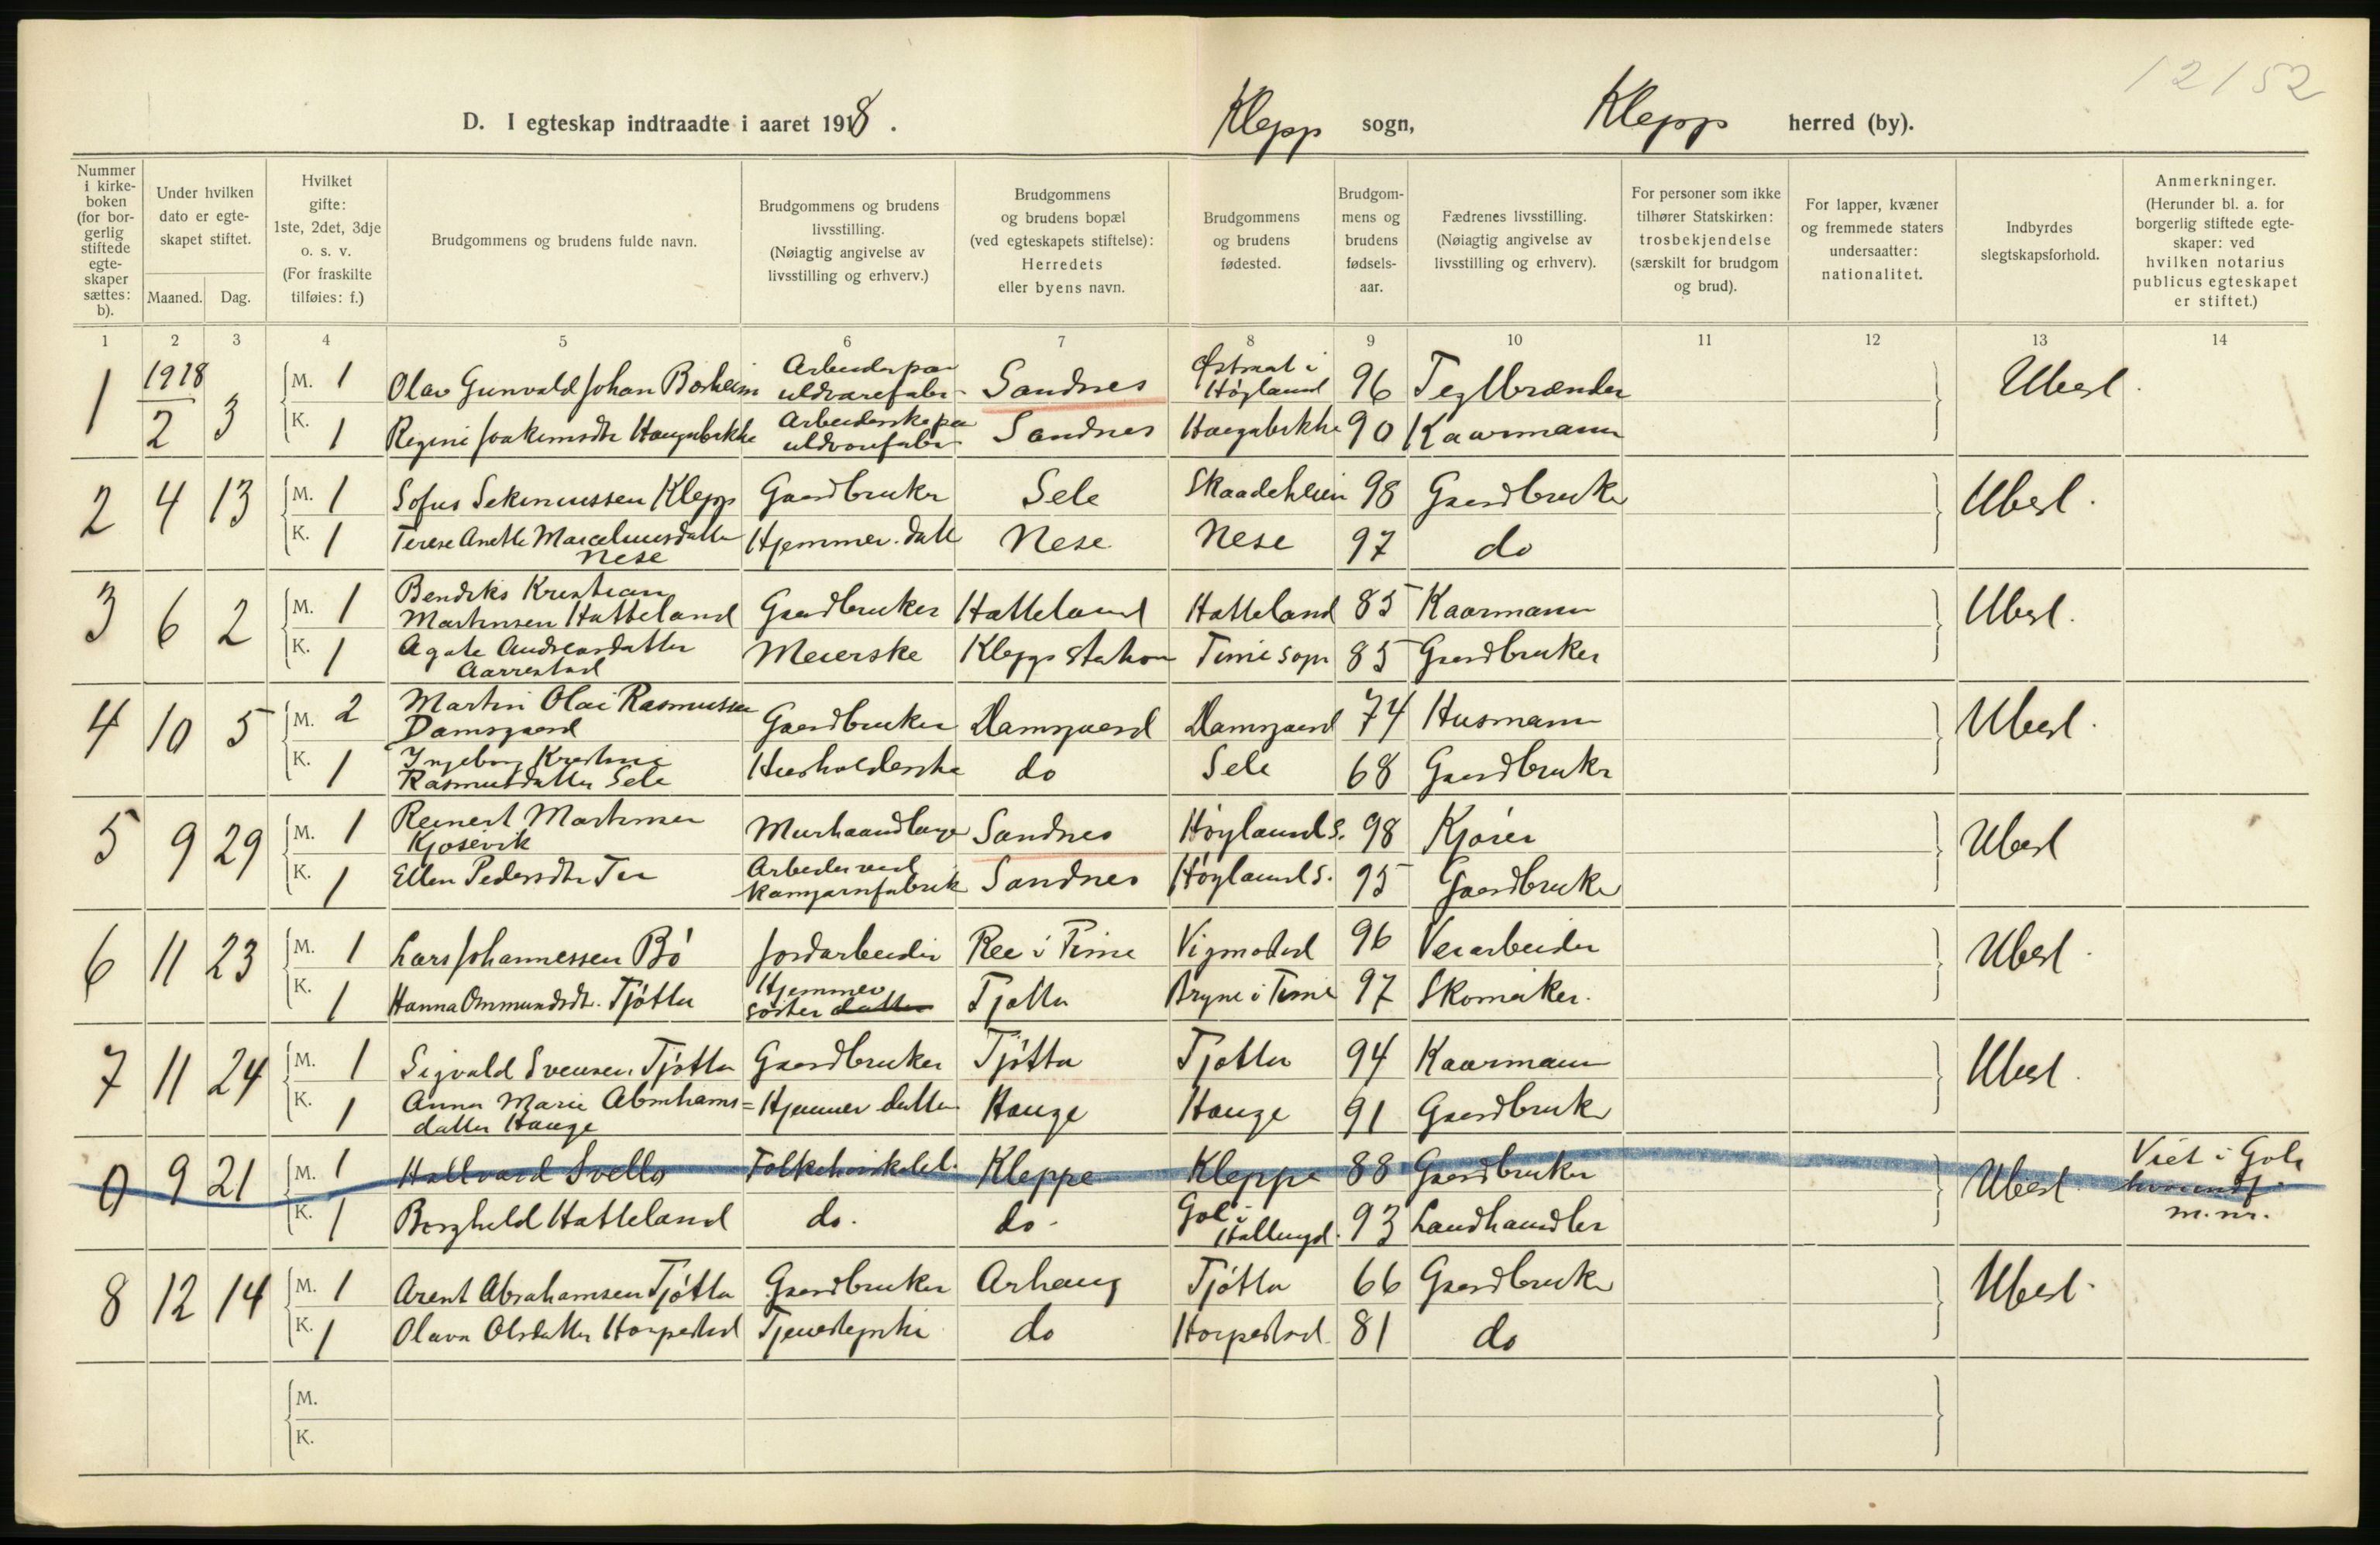 12152
D. I egteskap indtraadte i aaret 1918. Klepp sogn, Klepp herred (by).
Nummer i kirke-boken (for bor-gerlig stiftede egte-skaper sættes: b).
Under hvilken dato er egte-skapet stiftet.
Maaned. Dag.
Hvilket gifte: 1ste, 2det, 3dje o. s. v. (For fraskilte tilføies: f.)
Brudgommens og brudens fulde navn.
Brudgommens og brudens livsstilling. (Nøiagtig angivelse av livsstilling og erhverv.)
Brudgommens og brudens bopæl (ved egteskapets stiftelse): Herredets eller byens navn.
Brudgommens og brudens fødested.
Brudgom-mens og brudens fødsels-aar.
Fædrenes livsstilling. (Nøiagtig angivelse av livsstilling og erhverv).
For personer som ikke tilhører Statskirken: trosbekjendelse (særskilt for brudgom og brud).
For lapper, kvæner og fremmede staters undersaatter: nationalitet.
Indbyrdes slegtskapsforhold.
Anmerkninger. (Herunder bl. a. for borgerlig stiftede egte-skaper: ved hvilken notarius publicus egteskapet er stiftet.)
1 2 3 4 5 6 7 8 9 10 11 12 13 14
1 1918 2 3 M. 1 Olav Gunvald Johan Borheim Arbeider paa uldvarefabr. Sandnes Høyland 96 Teglbrænder Ubesl.
K. 1 Regine Joakimsdtr Haugabekke Arbeiderske paa uldvarefabr. Sandnes Haugabekke 90 Kaarmann
2 4 13 M. 1 Sofus Sekmussen Klepp Gaardbruker Sele 98 Gaardbruker Ubesl.
K. 1 Terese Anette Marcelinusdatter Nese Hjemmev. datt Nese Nese 97 do
3 6 2 M. 1 Bendiks Kristian Martinsen Hatteland Gaardbruker Hatteland Hatteland 85 Kaarmann Ubesl.
K. 1 Agate Andreasdatter Aarrestad Meierske Klepp station Time sogn 85 Gaardbruker
4 10 5 M. 2 Martin Olai Rasmussen Damsgaard Gaardbruker Damsgaard Damsgaard 74 Husmann Ubesl.
K. 1 Ingeborg Kristine Rasmusdatter Sele Husholderske do Sele 68 Gaardbruker
5 9 29 M. 1 Reinert Martinsen Kjosevik Murhaandlanger Sandnes Høyland s. 98 Kjører Ubesl
K. 1 Ellen Pedersdtr Tu Arbeider ved kamgarnfabrik Sandnes Høyland s. 95 Gaardbruker
6 11 23 M. 1 Lars Johannessen Bö Jordarbeider Ree i Time Vigmostad 96 Veiarbeider Ubesl.
K. 1 Hanna Ommundsdt. Tjötta Hjemmev søster datter Tjotta Bryne i Time 97 Skomaker.
7 11 24 M. 1 Sigvald Svensen Tjøtta Gaardbruker Tjøtta Tjotta 94 Kaarmann Ubesl.
K. 1 Anna Marie Abrahams=datter Hauge Hjemmev datter Hauge Hauge 91 Gaardbruker
0 9 21 M. 1 Hallvard Svello Kleppe Kleppe 88 Gaardbruker Ubesl. Viet i Gol m.m.
K. 1 Borghild Hatteland do. do. Gol i Hallingd. 93 Landhandler
8 12 14 M. 1 Arent Abrahamsen Tjøtta Gaardbruker Arhaug Tjøtta 66 Gaardbruker Ubesl.
K. 1 Olava Olsdatter Horpestad Tjenestepike do Horpestad 81 do
M.
K.